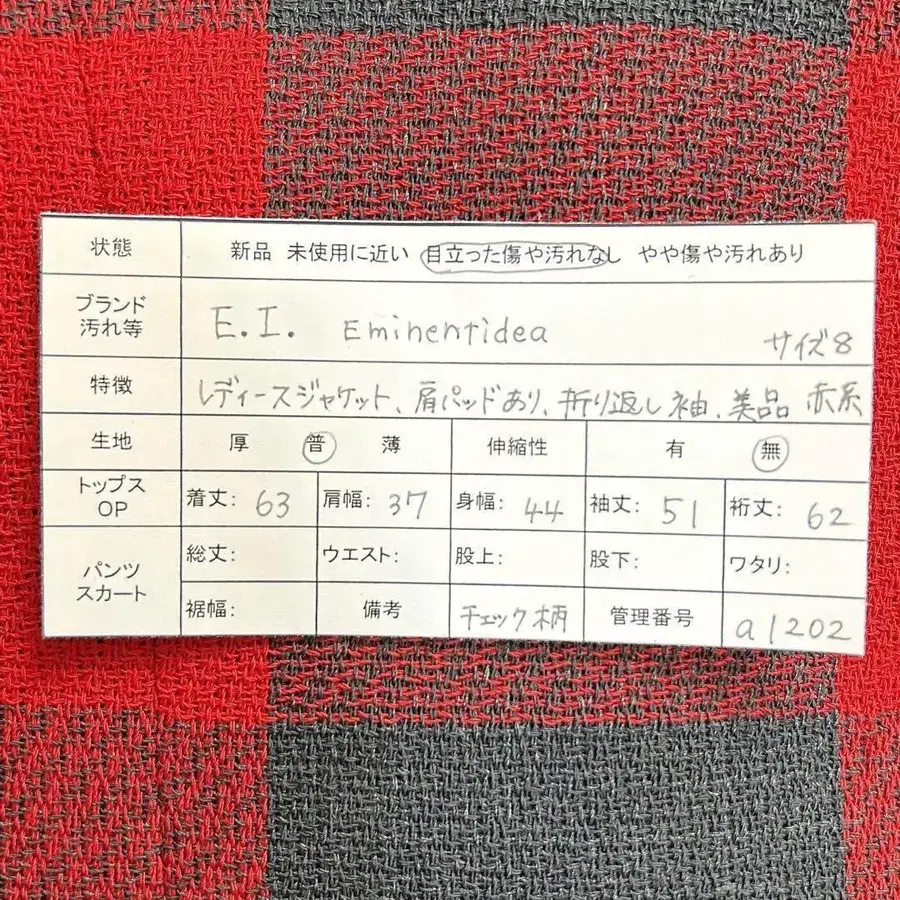 状態 新品 未使用に近い 目立った傷や汚れなし やや傷や汚れあり
ブランド
汚れ等 E.I. Eminentidea サイズ8
特徴 レディースジャケット、肩パッドあり、折り返し袖、美品 赤系
生地 厚 普 薄 伸縮性 有 無
トップス
OP 着丈: 63 肩幅: 37 身幅: 44 袖丈: 51 裄丈: 62
パンツ
スカート 総丈: ウエスト: 股上: 股下: ワタリ:
裾幅: 備考 チェック柄 管理番号 a1202